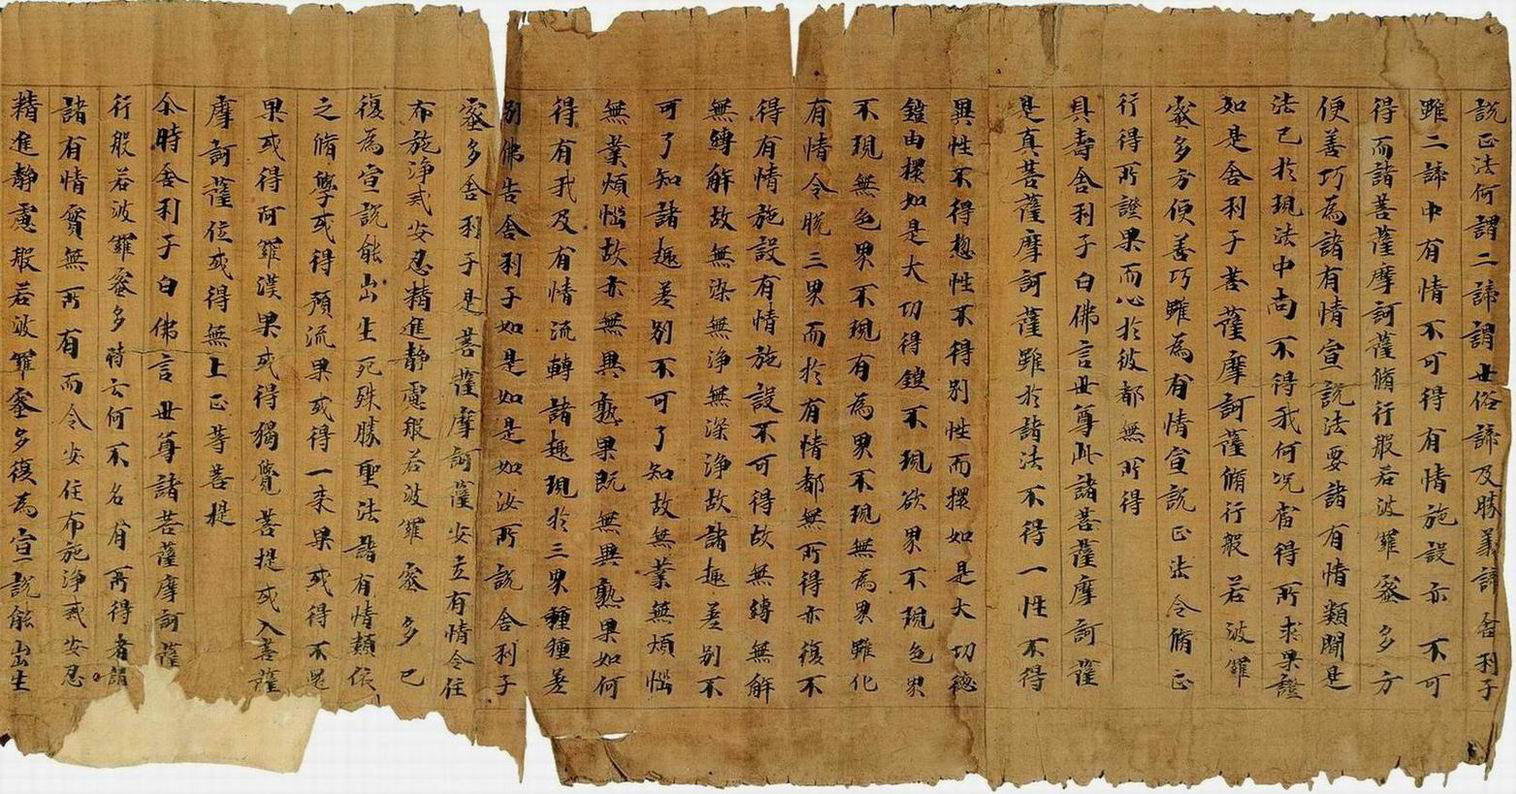 說正法何謂二諦謂世俗諦及勝義諦舍利子
雖二諦中有情不可得有情施設亦不可
得而諸菩薩摩訶薩脩行般若波羅蜜多方
便善巧為諸有情宣說法要諸有情類聞是
法已於現法中尚不得我何況當得所求果證
如是舍利子菩薩摩訶薩脩行般若波羅
蜜多方便善巧雖為有情宣說正法令脩正
行得所證果而心於彼都無所得
具壽舍利子白佛言世尊此諸菩薩摩訶薩
是真菩薩摩訶薩雖於諸法不得一性不得
異性不得惣性不得別性而擐如是大功德
鎧由擐如是大功得鎧不現欲界不現色界
不現無色界不現有為界不現無為界雖化
有情令脫三界而於有情都無所得亦復不
得有情施設有情施設不可得故無縛無解
無縛解故無染無淨無染淨故諸趣差別不
可了知諸趣差別不可了知故無業無煩惱
無業煩惱故亦無異熟果既無異熟果如何
得有我及有情流轉諸趣現於三界種種差
別佛告舍利子如是如是如汝所說舍利子
蜜多舍利子是菩薩摩訶薩安立有情令住
布施淨戒安忍精進靜慮般若波羅蜜多已
復為宣說能出生死殊勝聖法諸有情類依
之脩學或得預流果或得一來果或得不還
果或得阿羅漢果或得獨覺菩提或入菩薩
摩訶薩位或得無上正等菩提
尒時舍利子白佛言世尊諸菩薩摩訶薩
行般若波羅蜜多時云何不名有所得者諸
諸有情實無所有而令安住布施淨戒安忍
精進靜慮般若波羅蜜多復為宣說能出生